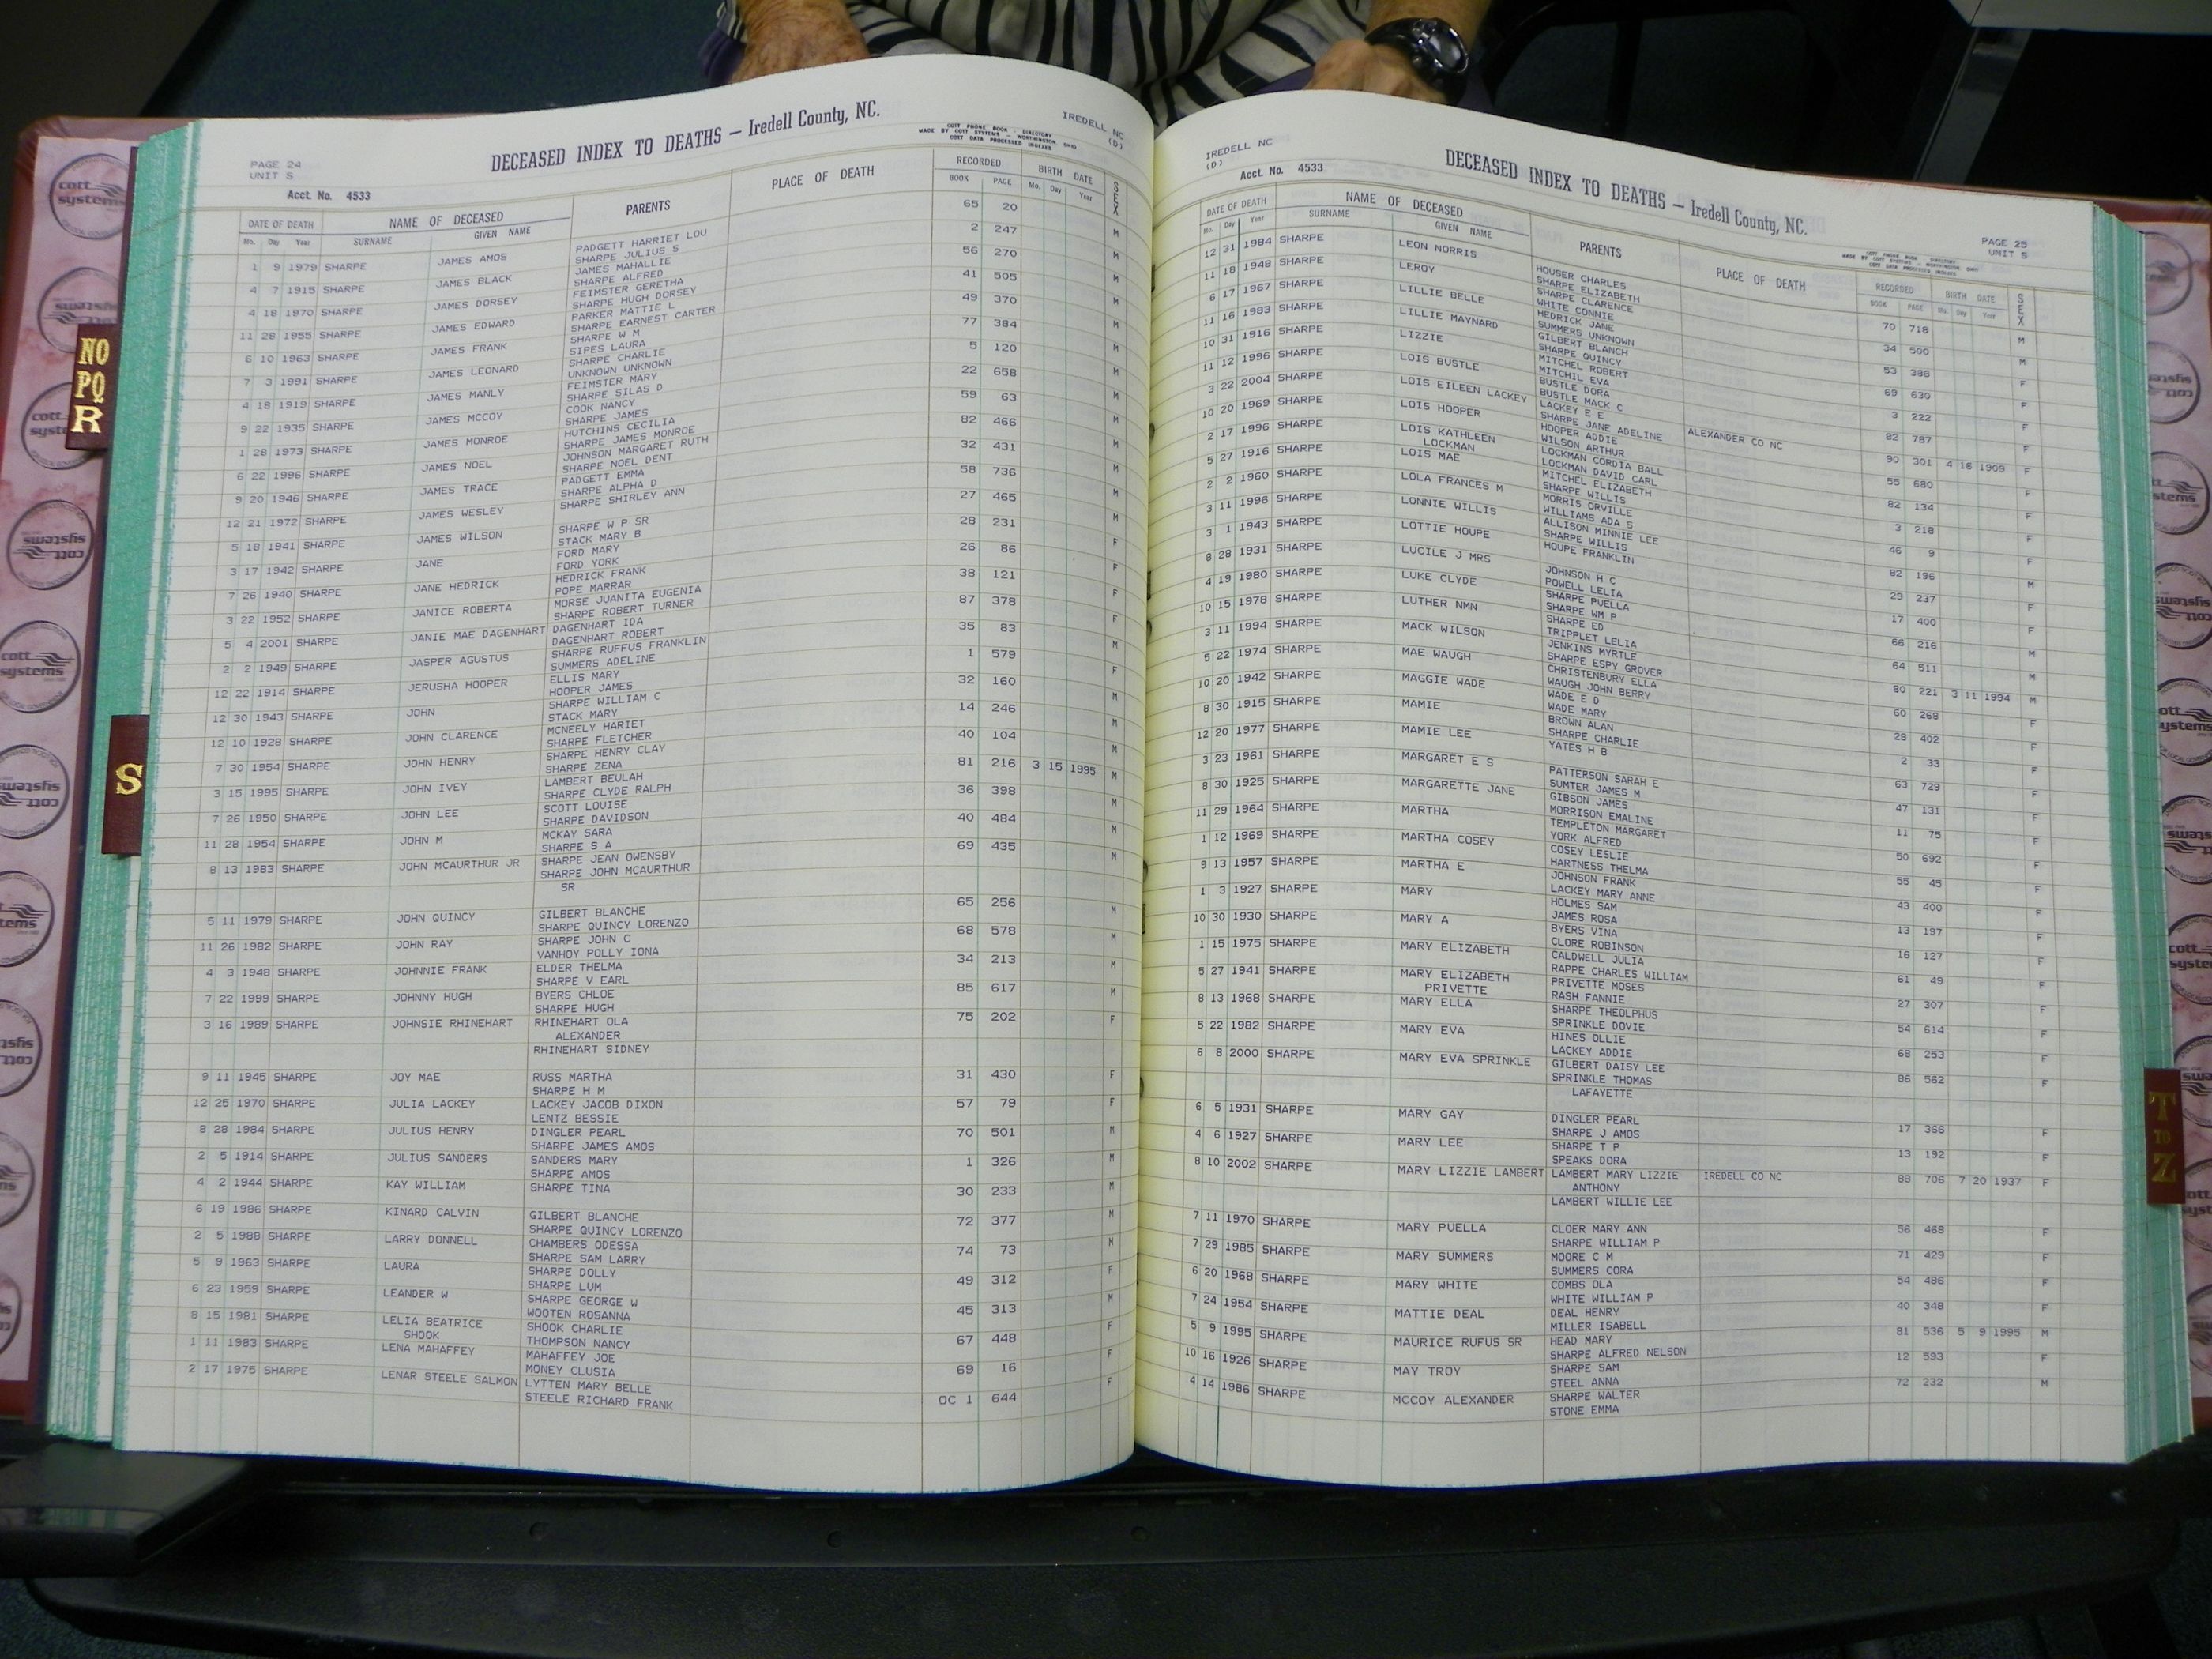 NO
PQ
R
S
T
TO
Z
cott
systems
PAGE 24
UNIT S
Acct. No. 4533
DECEASED INDEX TO DEATHS — Iredell County, NC.
COTT PHONE BOOK - DIRECTORY
MADE BY COTT SYSTEMS - WORTHINGTON, OHIO
COTT DATA PROCESSED INDEXES
IREDELL NC
(D)
DATE OF DEATH NAME OF DECEASED PARENTS PLACE OF DEATH RECORDED BIRTH DATE SEX
Mo. Day Year SURNAME GIVEN NAME BOOK PAGE Mo. Day Year
1 9 1979 SHARPE JAMES AMOS PADGETT HARRIET LOU 65 20 M
SHARPE JULIUS S
4 7 1915 SHARPE JAMES BLACK JAMES MAHALLIE 2 247 M
SHARPE ALFRED
4 18 1970 SHARPE JAMES DORSEY FEIMSTER GERETHA 56 270 M
SHARPE HUGH DORSEY
11 28 1955 SHARPE JAMES EDWARD PARKER MATTIE L 41 505 M
SHARPE EARNEST CARTER
6 10 1963 SHARPE JAMES FRANK SHARPE W M 49 370 M
SIPES LAURA
7 3 1991 SHARPE JAMES LEONARD SHARPE CHARLIE 77 384 M
UNKNOWN UNKNOWN
4 18 1919 SHARPE JAMES MANLY FEIMSTER MARY 5 120 M
SHARPE SILAS D
9 22 1935 SHARPE JAMES MCCOY COOK NANCY 22 658 M
SHARPE JAMES
1 28 1973 SHARPE JAMES MONROE HUTCHINS CECILIA 59 63 M
SHARPE JAMES MONROE
6 22 1996 SHARPE JAMES NOEL JOHNSON MARGARET RUTH 82 466 M
SHARPE NOEL DENT
9 20 1946 SHARPE JAMES TRACE PADGETT EMMA 32 431 M
SHARPE ALPHA D
12 21 1972 SHARPE JAMES WESLEY SHARPE SHIRLEY ANN 58 736 M
5 18 1941 SHARPE JAMES WILSON SHARPE W P SR 27 465 M
STACK MARY B
3 17 1942 SHARPE JANE FORD MARY 28 231 F
FORD YORK
7 26 1940 SHARPE JANE HEDRICK HEDRICK FRANK 26 86 F
POPE MARRAR
3 22 1952 SHARPE JANICE ROBERTA MORSE JUANITA EUGENIA 38 121 F
SHARPE ROBERT TURNER
5 4 2001 SHARPE JANIE MAE DAGENHART DAGENHART IDA 87 378 F
DAGENHART ROBERT
2 2 1949 SHARPE JASPER AGUSTUS SHARPE RUFFUS FRANKLIN 35 83 M
SUMMERS ADELINE
12 22 1914 SHARPE JERUSHA HOOPER ELLIS MARY 1 579 F
HOOPER JAMES
12 30 1943 SHARPE JOHN SHARPE WILLIAM C 32 160 M
STACK MARY
12 10 1928 SHARPE JOHN CLARENCE MCNEELY HARIET 14 246 M
SHARPE FLETCHER
7 30 1954 SHARPE JOHN HENRY SHARPE HENRY CLAY 40 104 M
SHARPE ZENA
3 15 1995 SHARPE JOHN IVEY LAMBERT BEULAH 81 216 3 15 1995 M
SHARPE CLYDE RALPH
7 26 1950 SHARPE JOHN LEE SCOTT LOUISE 36 398 M
SHARPE DAVIDSON
11 28 1954 SHARPE JOHN M MCKAY SARA 40 484 M
SHARPE S A
8 13 1983 SHARPE JOHN MCAURTHUR JR SHARPE JEAN OWENSBY 69 435 M
SHARPE JOHN MCAURTHUR
SR
5 11 1979 SHARPE JOHN QUINCY GILBERT BLANCHE 65 256 M
SHARPE QUINCY LORENZO
11 26 1982 SHARPE JOHN RAY SHARPE JOHN C 68 578 M
VANHOY POLLY IONA
4 3 1948 SHARPE JOHNNIE FRANK ELDER THELMA 34 213 M
SHARPE V EARL
7 22 1999 SHARPE JOHNNY HUGH BYERS CHLOE 85 617 M
SHARPE HUGH
3 16 1989 SHARPE JOHNSIE RHINEHART RHINEHART OLA 75 202 F
ALEXANDER
RHINEHART SIDNEY
9 11 1945 SHARPE JOY MAE RUSS MARTHA 31 430 F
SHARPE H M
12 25 1970 SHARPE JULIA LACKEY LACKEY JACOB DIXON 57 79 F
LENTZ BESSIE
8 28 1984 SHARPE JULIUS HENRY DINGLER PEARL 70 501 M
SHARPE JAMES AMOS
2 5 1914 SHARPE JULIUS SANDERS SANDERS MARY 1 326 M
SHARPE AMOS
4 2 1944 SHARPE KAY WILLIAM SHARPE TINA 30 233 M
6 19 1986 SHARPE KINARD CALVIN GILBERT BLANCHE 72 377 M
SHARPE QUINCY LORENZO
2 5 1988 SHARPE LARRY DONNELL CHAMBERS ODESSA 74 73 M
SHARPE SAM LARRY
5 9 1963 SHARPE LAURA SHARPE DOLLY 49 312 F
SHARPE LUM
6 23 1959 SHARPE LEANDER W SHARPE GEORGE W 45 313 M
WOOTEN ROSANNA
8 15 1981 SHARPE LELIA BEATRICE SHOOK CHARLIE 67 448 F
SHOOK THOMPSON NANCY
1 11 1983 SHARPE LENA MAHAFFEY MAHAFFEY JOE 69 16 F
MONEY CLUSIA
2 17 1975 SHARPE LENAR STEELE SALMON LYTTEN MARY BELLE OC 1 644 F
STEELE RICHARD FRANK
IREDELL NC
(D)
Acct. No. 4533
DECEASED INDEX TO DEATHS — Iredell County, NC.
PAGE 25
UNIT S
DATE OF DEATH NAME OF DECEASED PARENTS PLACE OF DEATH RECORDED BIRTH DATE SEX
Mo. Day Year SURNAME GIVEN NAME BOOK PAGE Mo. Day Year
12 31 1984 SHARPE LEON NORRIS HOUSER CHARLES 70 718 M
SHARPE ELIZABETH
11 18 1948 SHARPE LEROY SHARPE CLARENCE 34 500 M
WHITE CONNIE
6 17 1967 SHARPE LILLIE BELLE HEDRICK JANE 53 388 F
SUMMERS UNKNOWN
11 16 1983 SHARPE LILLIE MAYNARD GILBERT BLANCH 69 630 F
SHARPE QUINCY
10 31 1916 SHARPE LIZZIE MITCHEL ROBERT 3 222 F
MITCHIL EVA
11 12 1996 SHARPE LOIS BUSTLE BUSTLE DORA 82 787 F
BUSTLE MACK C
3 22 2004 SHARPE LOIS EILEEN LACKEY LACKEY E E ALEXANDER CO NC 90 301 4 16 1909 F
SHARPE JANE ADELINE
10 20 1969 SHARPE LOIS HOOPER HOOPER ADDIE 55 680 F
WILSON ARTHUR
2 17 1996 SHARPE LOIS KATHLEEN LOCKMAN CORDIA BALL 82 134 F
LOCKMAN LOCKMAN DAVID CARL
5 27 1916 SHARPE LOIS MAE MITCHEL ELIZABETH 3 218 F
SHARPE WILLIS
2 2 1960 SHARPE LOLA FRANCES M MORRIS ORVILLE 46 9 F
WILLIAMS ADA S
3 11 1996 SHARPE LONNIE WILLIS ALLISON MINNIE LEE 82 196 M
SHARPE WILLIS
3 1 1943 SHARPE LOTTIE HOUPE HOUPE FRANKLIN 29 237 F
8 28 1931 SHARPE LUCILE J MRS JOHNSON H C 17 400 F
POWELL LELIA
4 19 1980 SHARPE LUKE CLYDE SHARPE PUELLA 66 216 M
SHARPE WM P
10 15 1978 SHARPE LUTHER NMN SHARPE ED 64 511 M
TRIPPLET LELIA
3 11 1994 SHARPE MACK WILSON JENKINS MYRTLE 80 221 3 11 1994 M
SHARPE ESPY GROVER
5 22 1974 SHARPE MAE WAUGH CHRISTENBURY ELLA 60 268 F
WAUGH JOHN BERRY
10 20 1942 SHARPE MAGGIE WADE WADE E D 28 402 F
WADE MARY
8 30 1915 SHARPE MAMIE BROWN ALAN 2 33 F
SHARPE CHARLIE
12 20 1977 SHARPE MAMIE LEE YATES H B 63 729 F
3 23 1961 SHARPE MARGARET E S PATTERSON SARAH E 47 131 F
SUMTER JAMES M
8 30 1925 SHARPE MARGARETTE JANE GIBSON JAMES 11 75 F
MORRISON EMALINE
11 29 1964 SHARPE MARTHA TEMPLETON MARGARET 50 692 F
YORK ALFRED
1 12 1969 SHARPE MARTHA COSEY COSEY LESLIE 55 45 F
HARTNESS THELMA
9 13 1957 SHARPE MARTHA E JOHNSON FRANK 43 400 F
LACKEY MARY ANNE
1 3 1927 SHARPE MARY HOLMES SAM 13 197 F
JAMES ROSA
10 30 1930 SHARPE MARY A BYERS VINA 16 127 F
CLORE ROBINSON
1 15 1975 SHARPE MARY ELIZABETH CALDWELL JULIA 61 49 F
RAPPE CHARLES WILLIAM
5 27 1941 SHARPE MARY ELIZABETH PRIVETTE MOSES 27 307 F
PRIVETTE RASH FANNIE
8 13 1968 SHARPE MARY ELLA SHARPE THEOLPHUS 54 614 F
SPRINKLE DOVIE
5 22 1982 SHARPE MARY EVA HINES OLLIE 68 253 F
LACKEY ADDIE
6 8 2000 SHARPE MARY EVA SPRINKLE GILBERT DAISY LEE 86 562 F
SPRINKLE THOMAS
LAFAYETTE
6 5 1931 SHARPE MARY GAY DINGLER PEARL 17 366 F
SHARPE J AMOS
4 6 1927 SHARPE MARY LEE SHARPE T P 13 192 F
SPEAKS DORA
8 10 2002 SHARPE MARY LIZZIE LAMBERT LAMBERT MARY LIZZIE IREDELL CO NC 88 706 7 20 1937 F
ANTHONY
LAMBERT WILLIE LEE
7 11 1970 SHARPE MARY PUELLA CLOER MARY ANN 56 468 F
SHARPE WILLIAM P
7 29 1985 SHARPE MARY SUMMERS MOORE C M 71 429 F
SUMMERS CORA
6 20 1968 SHARPE MARY WHITE COMBS OLA 54 486 F
WHITE WILLIAM P
7 24 1954 SHARPE MATTIE DEAL DEAL HENRY 40 348 F
MILLER ISABELL
5 9 1995 SHARPE MAURICE RUFUS SR HEAD MARY 81 536 5 9 1995 M
SHARPE ALFRED NELSON
10 16 1926 SHARPE MAY TROY SHARPE SAM 12 593 F
STEEL ANNA
4 14 1986 SHARPE MCCOY ALEXANDER SHARPE WALTER 72 232 M
STONE EMMA